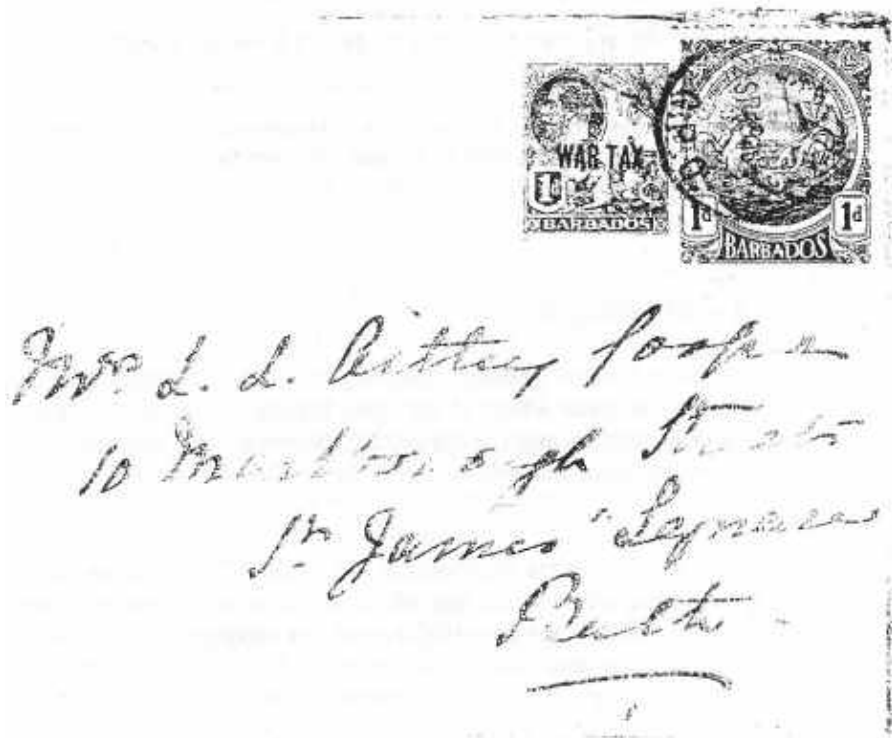 G.P.O.
WAR TAX
1d
BARBADOS
1d 1d
BARBADOS
Mrs L. L.
10 Marlborough Street
St James' Square
Bath